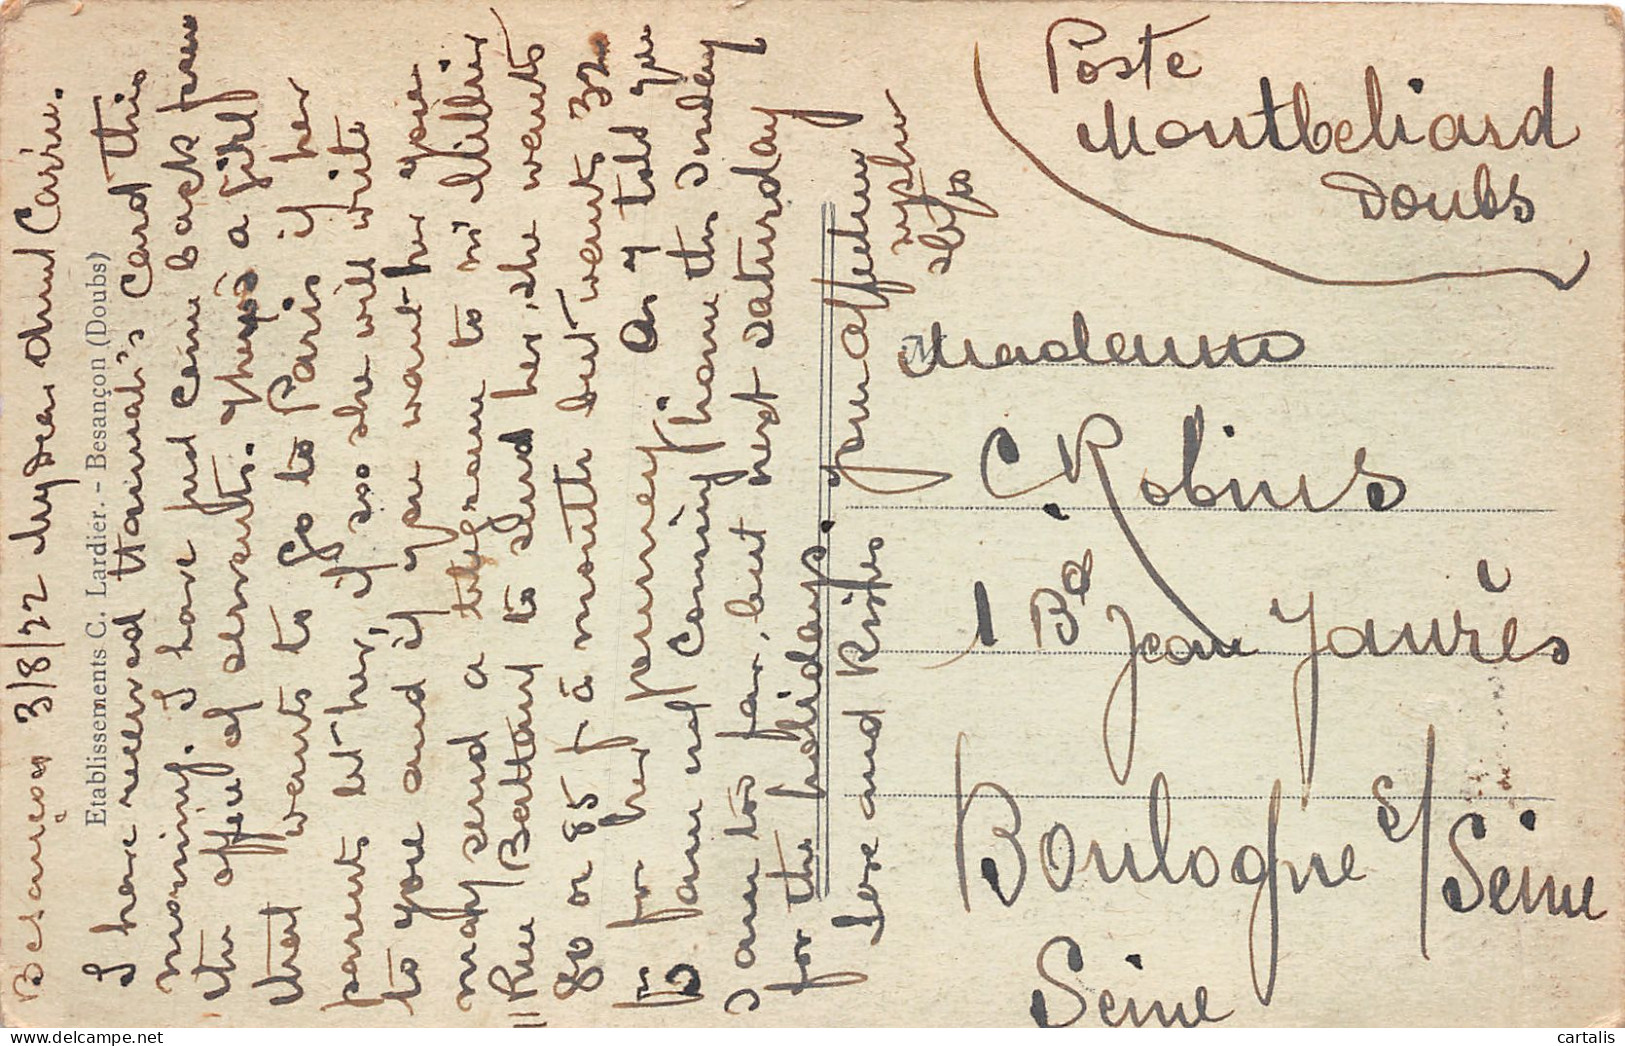 Besançon 3/8/22 My Dear Aunt Carrie.
I have received Hannah's card this
morning. I have just come back from
the office of servants. There's a girl
that wants to go to Paris if her
parents let her, if so she will write
to you and if you want her you
may send a telegramme to Mr
11 Rue Battant to send her, she wants
80 or 85 f à month but wants 32
fr for her journey. As I told you
I am not coming home this Sunday
I am too far, but next Saturday
for the holidays. Your affectueux
Love and kisses nephew
Etablissements C. Lardier. - Besançon (Doubs)
Poste
Montbeliard
Doubs
Madame
C. Robins
1 Bd Jean Jaurès
Boulogne s/ Seine
Seine
cartalis